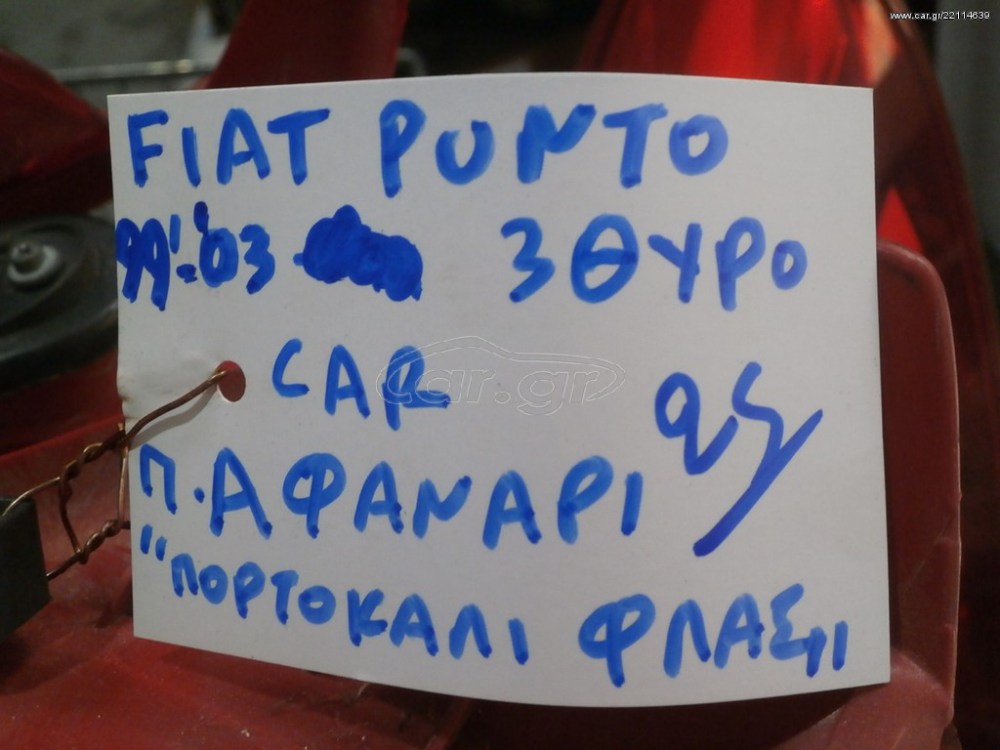 www.car.gr/22114639
FIAT PUNTO
99'-'03 3ΘΥΡΟ
CAR
car.gr
Π.Α ΦΑΝΑΡΙ
"ΠΟΡΤΟΚΑΛΙ ΦΛΑΣ"